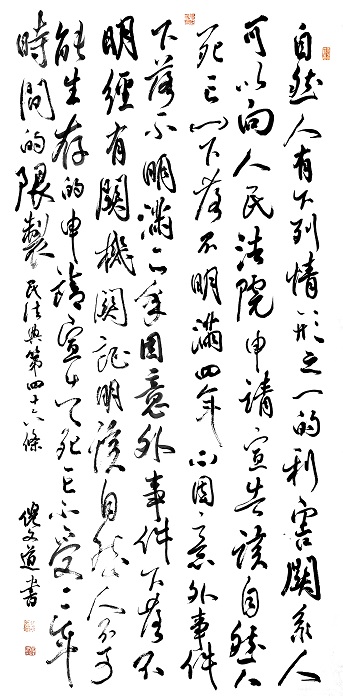 自然人有下列情形之一的利害關系人
可以向人民法院申請宣告該自然人
死亡(一)下落不明滿四年(二)因意外事件
下落不明滿二年因意外事件下落不
明經有關機關証明該自然人不可
能生存的申請宣告死亡不受二年
時間的限製 民法典第四十六條
倪文道書